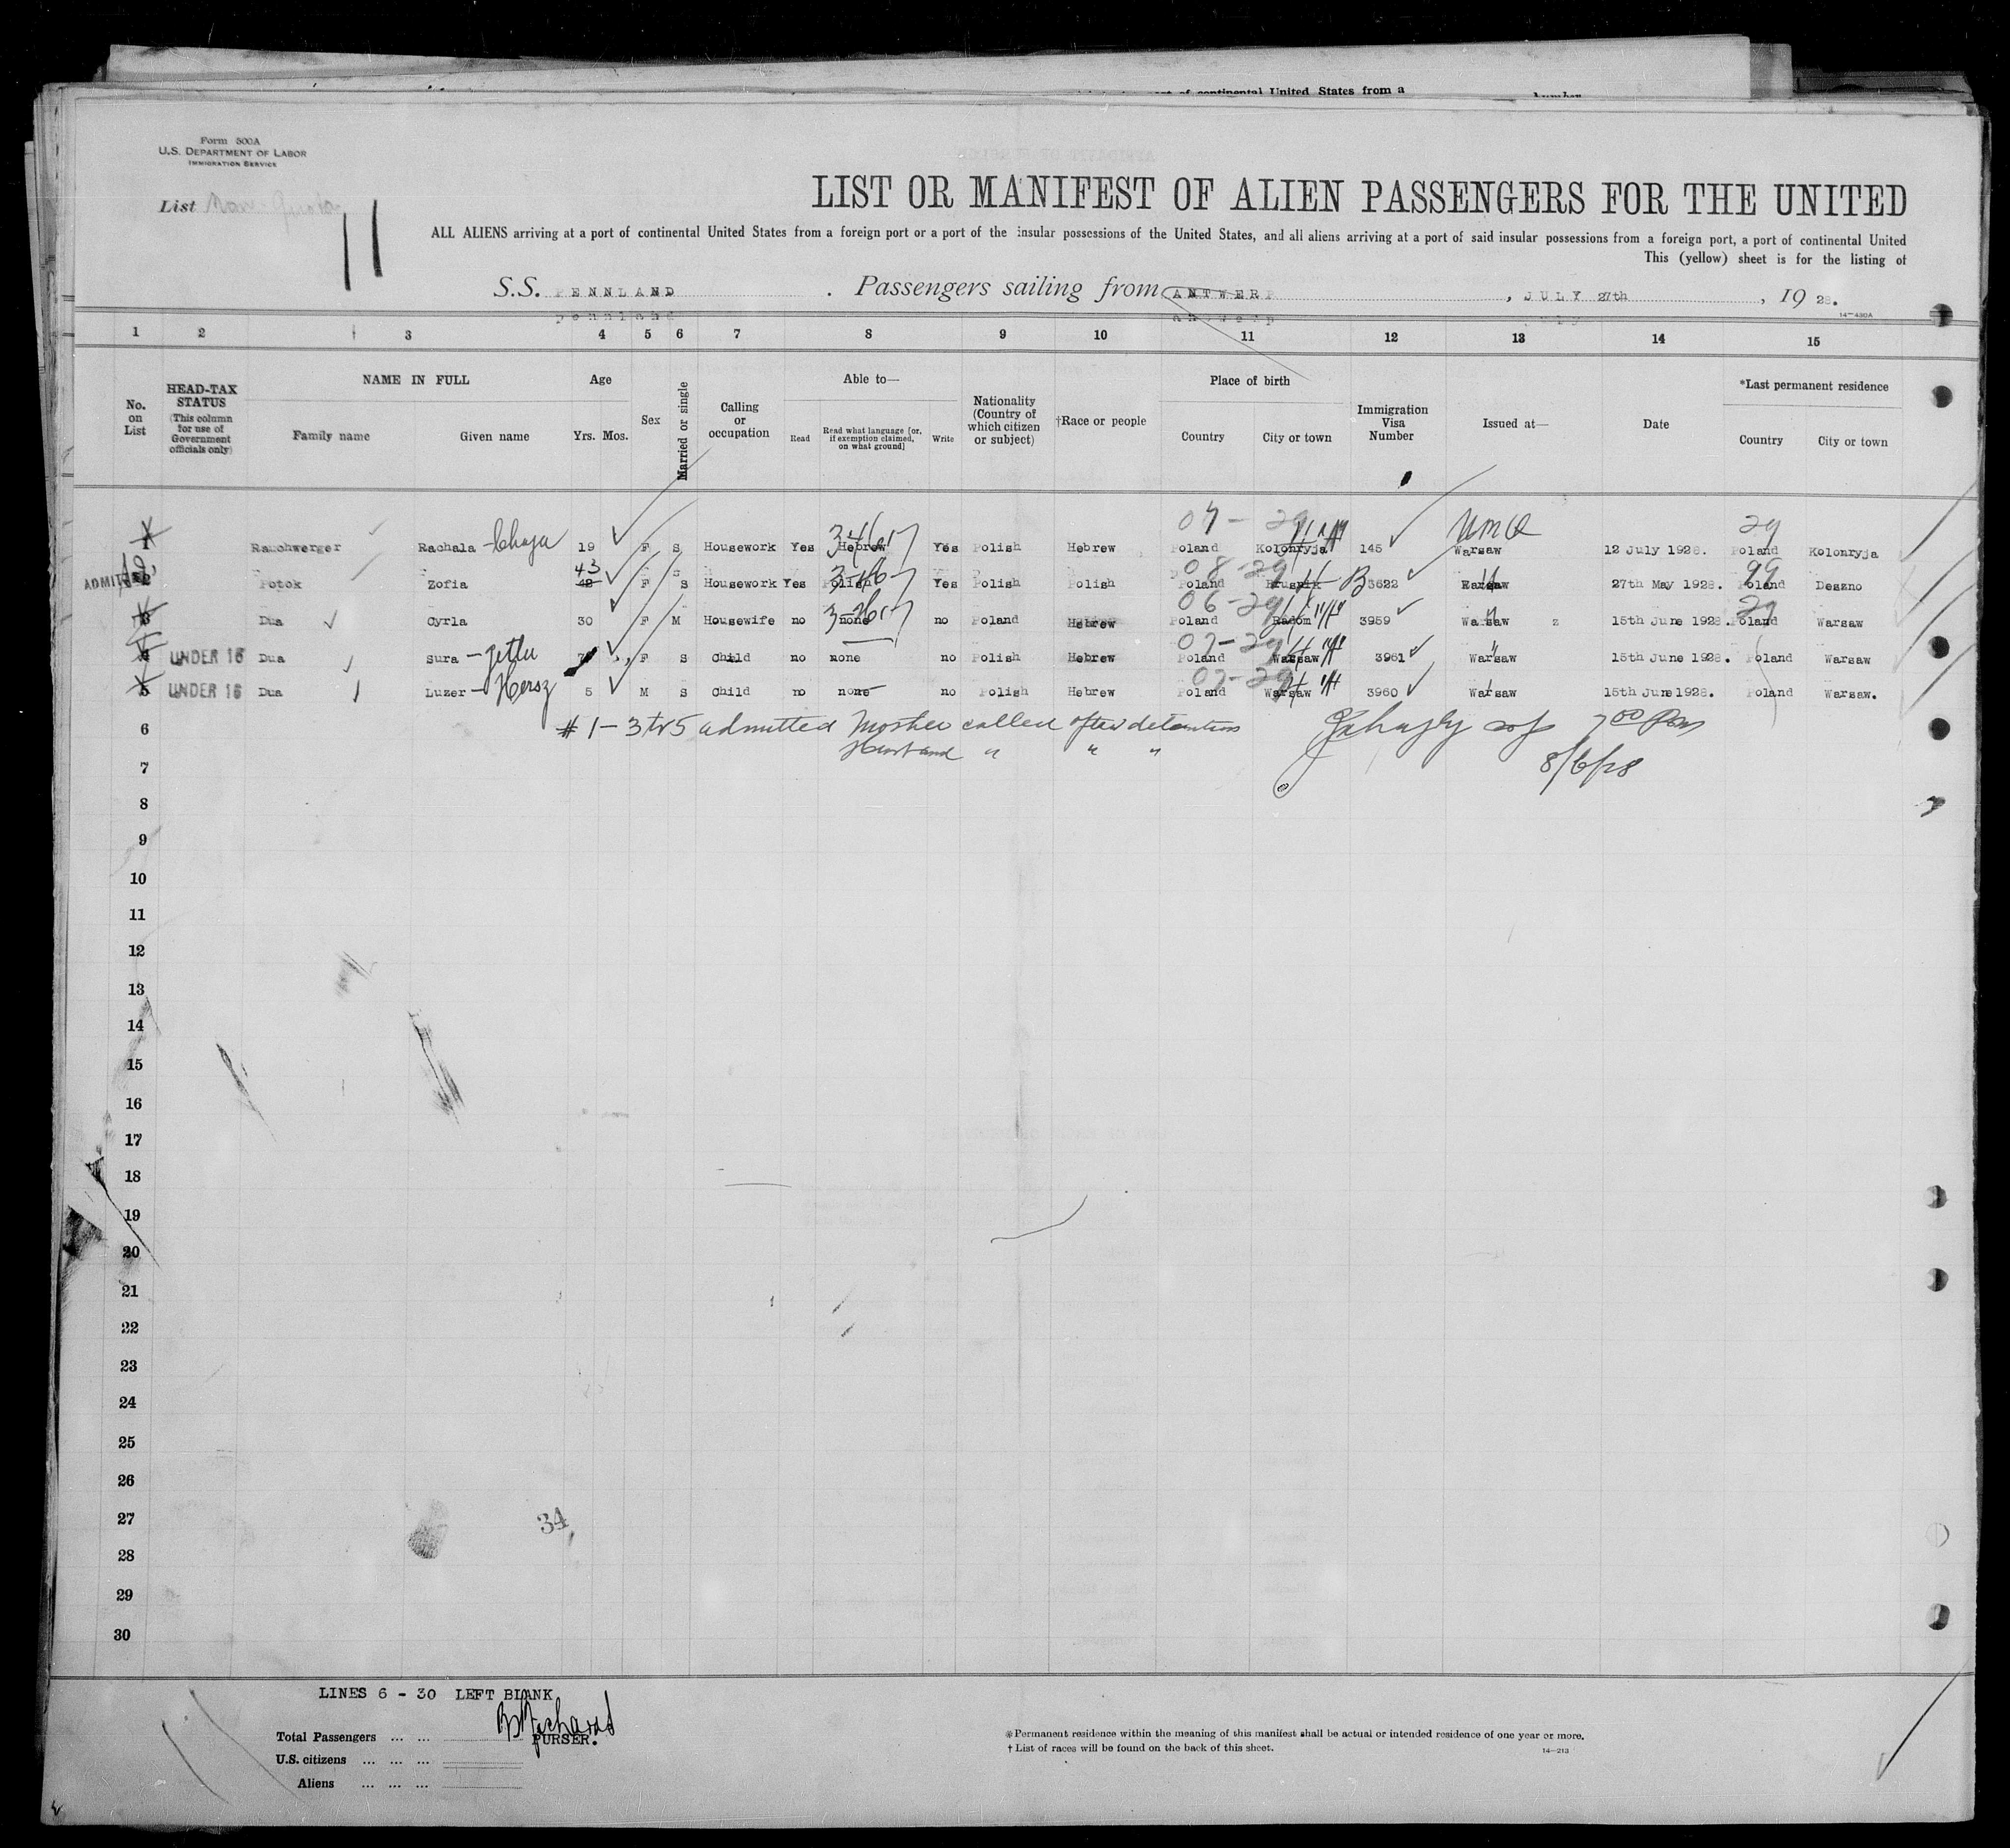 of continental United States from a
Form 500A
U.S. DEPARTMENT OF LABOR
IMMIGRATION SERVICE
List Non-Quota
11
LIST OR MANIFEST OF ALIEN PASSENGERS FOR THE UNITED
ALL ALIENS arriving at a port of continental United States from a foreign port or a port of the insular possessions of the United States, and all aliens arriving at a port of said insular possessions from a foreign port, a port of continental United
This (yellow) sheet is for the listing of
S.S. PENNLAND . Passengers sailing from ANTWERP , JULY 27th , 19 28.
14—430A
1 2 3 4 5 6 7 8 9 10 11 12 13 14 15
No. on List
HEAD-TAX STATUS (This column for use of Government officials only)
NAME IN FULL
Family name Given name
Age
Yrs. Mos.
Sex
Married or single
Calling or occupation
Able to—
Read Read what language [or, if exemption claimed, on what ground] Write
Nationality (Country of which citizen or subject)
†Race or people
Place of birth
Country City or town
Immigration Visa Number
Issued at—
Date
*Last permanent residence
Country City or town
1 Rauchwerger Rachala - Chaja 19 F S Housework Yes Hebrew Yes Polish Hebrew Poland Kolonryja 145 Warsaw 12 July 1928. Poland Kolonryja
ADMITTED 2 Potok Zofia 43 42 F S Housework Yes Polish Yes Polish Polish Poland 3622 Warsaw 27th May 1928. Poland Deszno
3 Dua Cyrla 30 F M Housewife no none no Poland Hebrew Poland Radom 3959 Warsaw 15th June 1928. Poland Warsaw
4 UNDER 16 Dua Sura - Jetta 7 F S Child no none no Polish Hebrew Poland Warsaw 3961 Warsaw 15th June 1928. Poland Warsaw
5 UNDER 16 Dua Luzer - Hersz 5 M S Child no none no Polish Hebrew Poland Warsaw 3960 Warsaw 15th June 1928. Poland Warsaw.
6 #1 - 3 to 5 admitted Mother called after detention 7 00 Pm
7 Husband " " " 8/6/28
8
9
10
11
12
13
14
15
16
17
18
19
20
21
22
23
24
25
26
27 34
28
29
30
LINES 6 - 30 LEFT BLANK
Total Passengers ... ... PURSER.
U.S. citizens ... ... ...
Aliens ... ... ...
*Permanent residence within the meaning of this manifest shall be actual or intended residence of one year or more.
† List of races will be found on the back of this sheet.
14—213